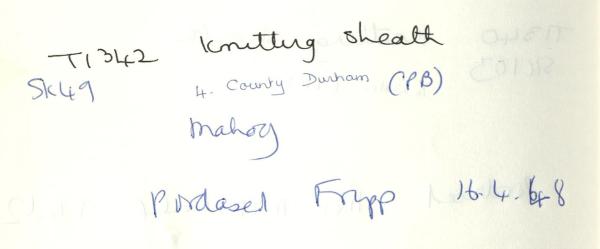 T1342 Knitting sheath
SK49 4. County Durham (PB)
Mahog
Purdased Fripp 16.4.68